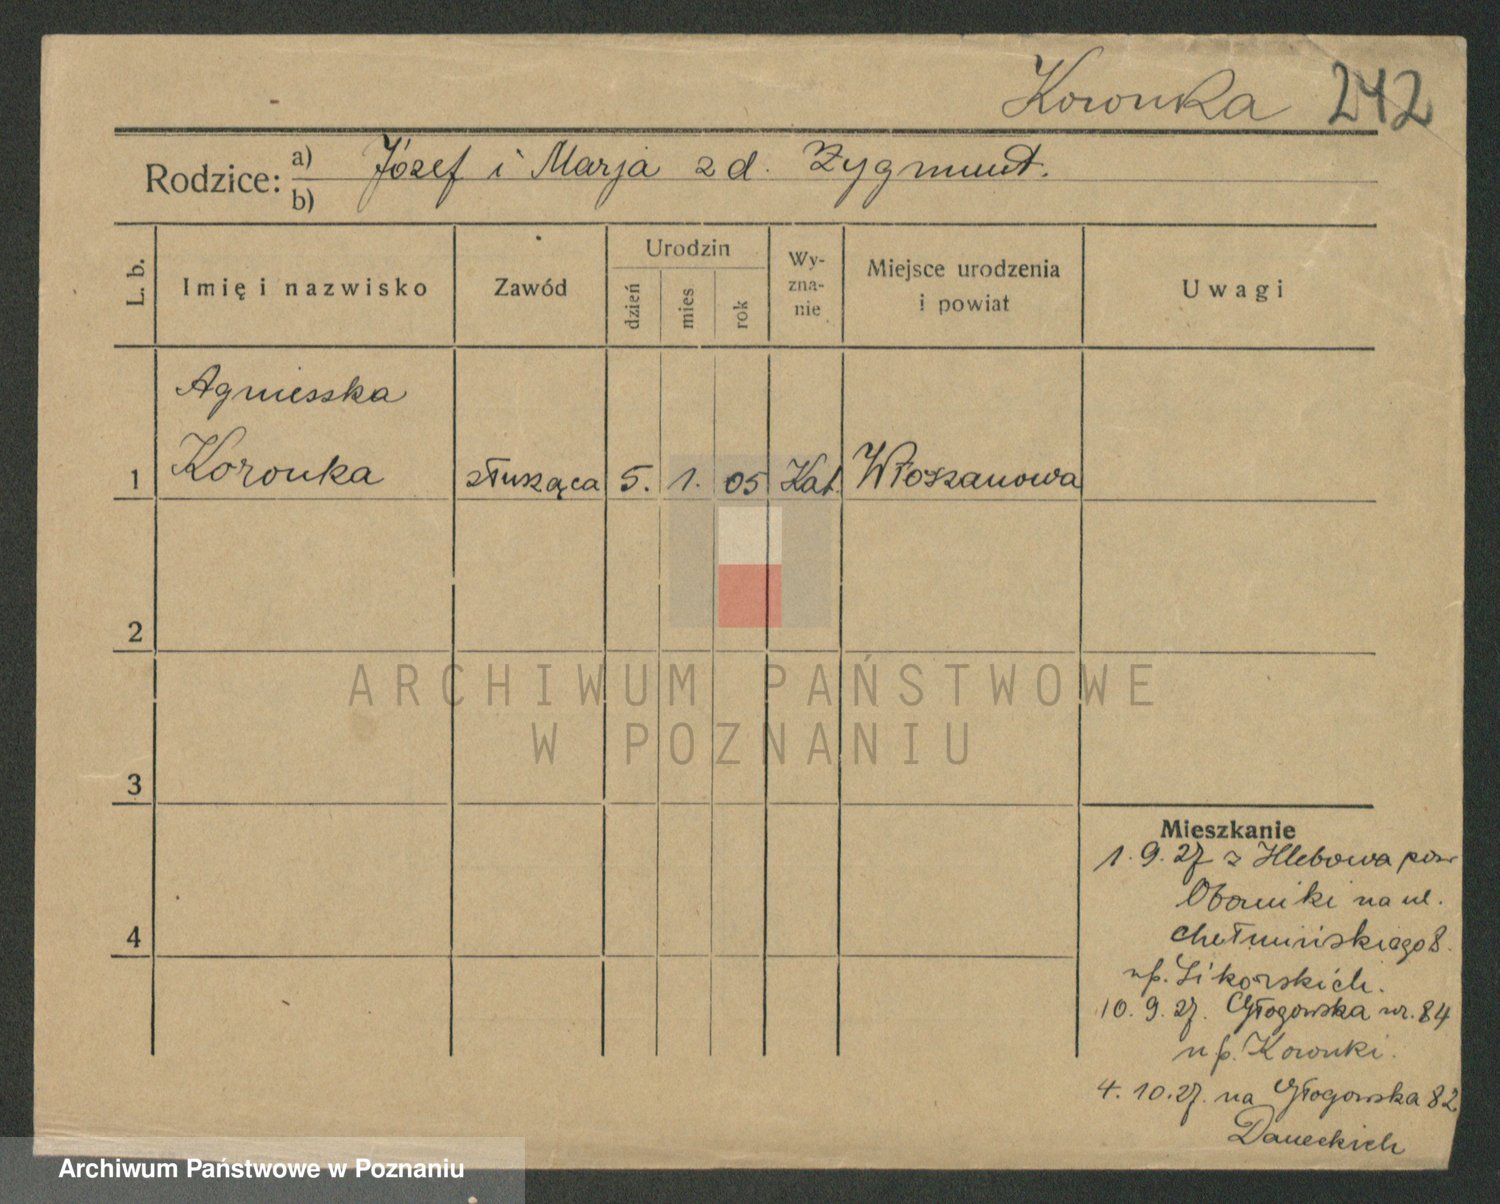 Koronka 242
Rodzice: a) Józef i Marja z d. Zygmunt.
b)
L. b.
Imię i nazwisko
Zawód
Urodzin
dzień
mies
rok
Wy-
zna-
nie
Miejsce urodzenia
i powiat
Uwagi
Agnieszka
1 Koronka służąca 5. 1. 05 Kat. Włoszanowa
2
3
4
Mieszkanie
1. 9. 27 z Hlebowa pow
Oborniki na ul.
Chełmińskiego 8.
u p. Sikorskich.
10. 9. 27. Głogowska nr. 84
u p. Koronki.
4. 10. 27. na Głogowska 82
Daneckich
ARCHIWUM PAŃSTWOWE
W POZNANIU
Archiwum Państwowe w Poznaniu